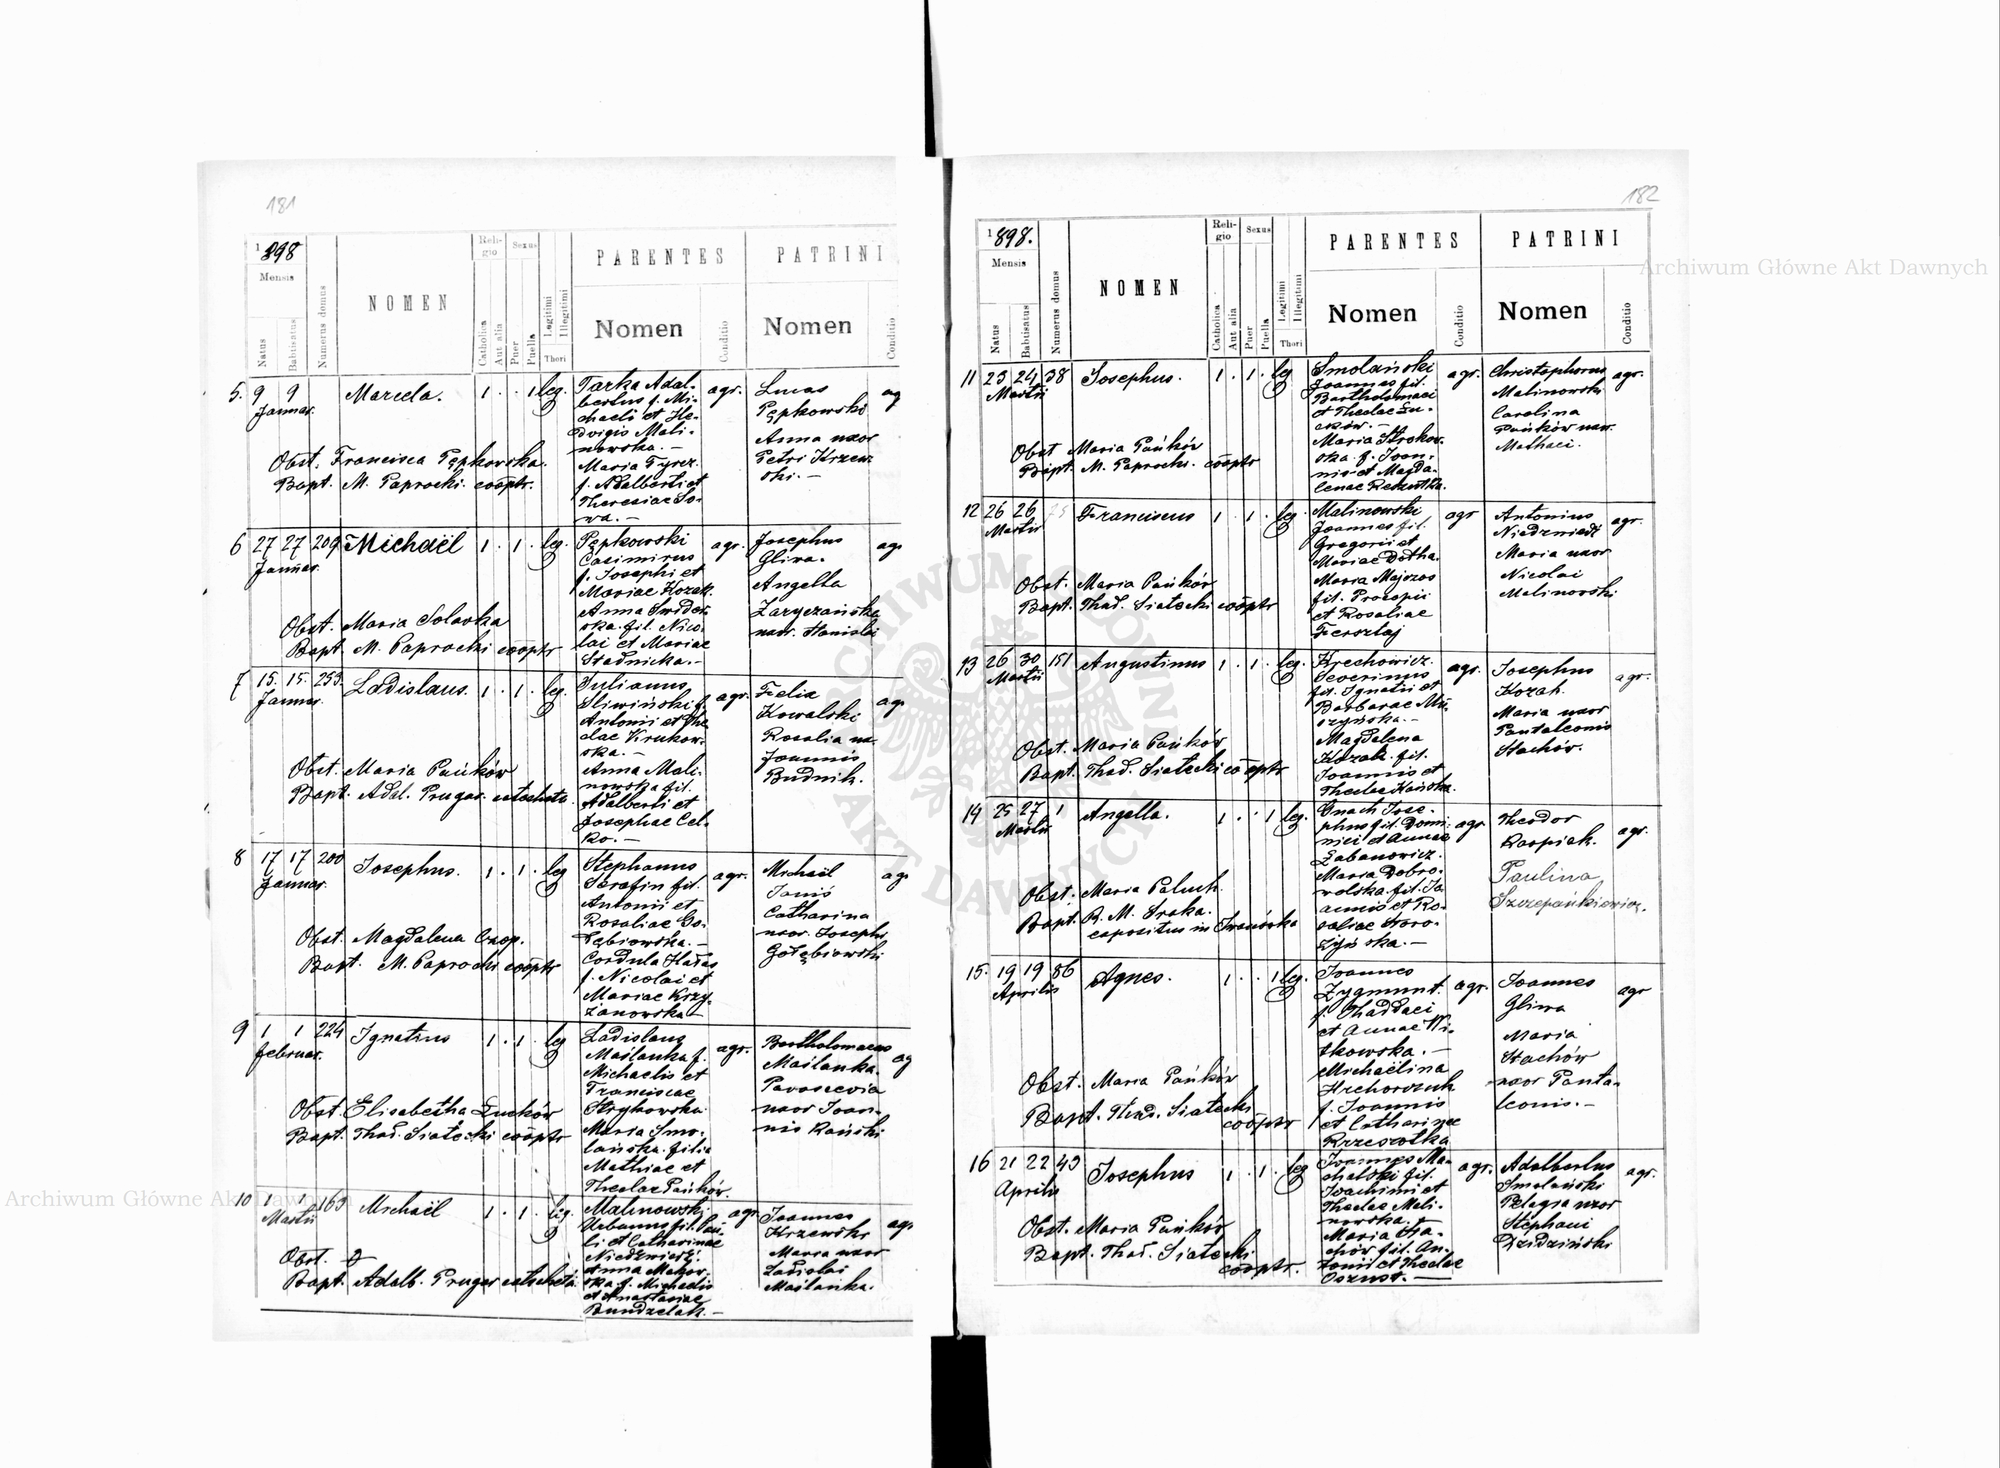 181
1898
Mensis
Natus
Babtisatus
Numerus domus
NOMEN
Reli-
gio
Catholica
Aut alia
Sexus
Puer
Puella
Legitimi
Illegitimi
Thori
PARENTES
Nomen
Conditio
PATRINI
Nomen
Conditio
5. 9 9 Marcela. 1 . . 1 leg.
Januar.
Obst. Francisca Pępkowska.
Bapt. M. Paprocki. cooptr.
Tarka Adal-
bertus f. Mi-
chaeli et He-
dvigis Mali-
nowska. —
Maria Tyrcz.
f. Adalberti et
Theresiae So-
wa. —
agr.
Lucas
Pępkowski
Anna uxor
Petri Krzew-
ski. —
ag
6 27 27 209 Michaël 1 . 1 . leg.
Januar.
Obst. Maria Solaska
Bapt. M. Paprocki cooptr
Pępkowski
Casimirus
f. Josephi et
Mariae Kozak.
Anna Swider-
ska. fil. Nico-
lai et Mariae
Stadnicka. —
agr.
Josephus
Gliwa.
Angella
Zaryczańska
uxr. Stanislai
agr
7 15. 15. 253. Ladislaus. 1 . 1 . leg.
Januar.
Obst. Maria Pańków
Bapt. Adal. Prugar. catecheta.
Julianus
Sliwiński f.
Antonii et The-
clae Krukow-
ska. —
Anna Mali-
nowska fil.
Adalberti et
Josephae Cel-
ko. —
agr.
Felix
Kowalski
Rosalia ux.
Joannis
Budnik.
agr
8 17 17 200 Josephus. 1 . 1 . leg
Januar.
Obst. Magdalena Czop.
Bapt. M. Paprocki cooptr
Stephanus
Serafin fil.
Antonii et
Rosaliae Go-
łębiowska. —
Cordula Hałas
f. Nicolai et
Mariae Krzy-
żanowska —
agr.
Michaël
Janiś
Catharina
uxor. Josephi
Gołębiowski
ag
9 1 1 224 Ignatius 1 . 1 . leg
Februar.
Obst. Elisabetha Łucków
Bapt. Thad. Siatecki cooptr
Ladislaus
Maślanka f.
Michaelis et
Franciscae
Strykowska.
Maria Smo-
lańska. filia
Mathiae et
Theclae Pańków.
agr.
Bartholomaeus
Maślanka.
Parascevia
uxor Joan-
nis Kański
ag
10 1 1 163 Michaël 1 . 1 . leg.
Martii
Obst.
Bapt. Adalb. Prugar catecheta
Malinowski
Urbanus fil. Pau-
li et Catharinae
Niedzwiedź.
Anna Makow-
ska f. Michaelis
et Anastasiae
Bundzelak. —
agr.
Joannes
Krzewski
Maria uxor
Ladislai
Maślanka.
agr
182
1898.
Mensis
Natus
Babtisatus
Numerus domus
NOMEN
Reli-
gio
Catholica
Aut alia
Sexus
Puer
Puella
Legitimi
Illegitimi
Thori
PARENTES
Nomen
Conditio
PATRINI
Nomen
Conditio
11 23 24 38 Josephus. 1 . 1 . leg
Martii
Obst Maria Pańków
Bapt. M. Paprocki. cooptr
Smolański
Joannes fil.
Bartholomaei
et Theclae Łu-
ców. —
Maria Strokow-
ska. f. Joan-
nis et Magda-
lenae Reszutka.
agr.
Christophorus
Malinowski
Carolina
Pańków uxr.
Mathaei.
agr.
12 26 26 75 Franciscus 1 . 1 . leg.
Martii
Obst. Maria Pańków
Bapt. Thad. Siatecki cooptr
Malinowski
Joannes fil.
Gregorii et
Mariae Dotha.
Maria Majcros
fil. Procopii
et Rosaliae
Fersztaj
agr
Antonius
Niedzwiedź
Maria uxor
Nicolai
Malinowski
agr.
13 26 30 151 Augustinus 1 . 1 . leg.
Martii
Obst. Maria Pańków
Bapt. Thad. Siatecki cooptr
Krechowicz.
Severinus
fil. Ignatii et
Barbarae Mu-
szyńska. —
Magdalena
Kozak. fil.
Joannis et
Theclae Kańska.
agr.
Josephus
Kozak.
Maria uxor
Pantaleonis
Stachów.
agr.
14 25 27 1 Angella. 1 . . 1 leg.
Martii
Obst. Maria Paluch.
Bapt. R. M. Sroka.
expositus in Iwanówka
Gnach Jose-
phus fil. Domi-
nici et Annae
Łabanowicz.
Maria Dobro-
wolska. fil. Jo-
annis et Ro-
saliae Skoro-
żyńska. —
agr.
Theodor
Kaspick.
Paulina
Szczepańkiewicz.
agr.
15. 19 19 86 Agnes. 1 . . 1 leg.
Aprilis
Obst. Maria Pańków
Bapt. Thad. Siatecki
cooptr
Joannes
Zygmunt.
f. Thaddaei
et Annae Wi-
tkowska. —
Michaëlina
Hrehorczuk
f. Joannis
et Catharinae
Krzeszotka
agr.
Joannes
Gliwa
Maria
Stachów
uxor Panta-
leonis. —
agr
16 21 22 43 Josephus 1 . 1 . leg
Aprilis
Obst. Maria Pańków
Bapt. Thad. Siatecki
cooptr.
Joannes Ma-
chalski fil.
Joachimi et
Theclae Mali-
nowska. —
Maria Sta-
chów fil. An-
tonii et Theclae
Oszust. —
agr.
Adalbertus
Smolański
Pelagia uxor
Stephani
Dzidziński
agr.
Archiwum Główne Akt Dawnych
Archiwum Główne Akt Dawnych
ARCHIWUM GŁÓWNE AKT DAWNYCH